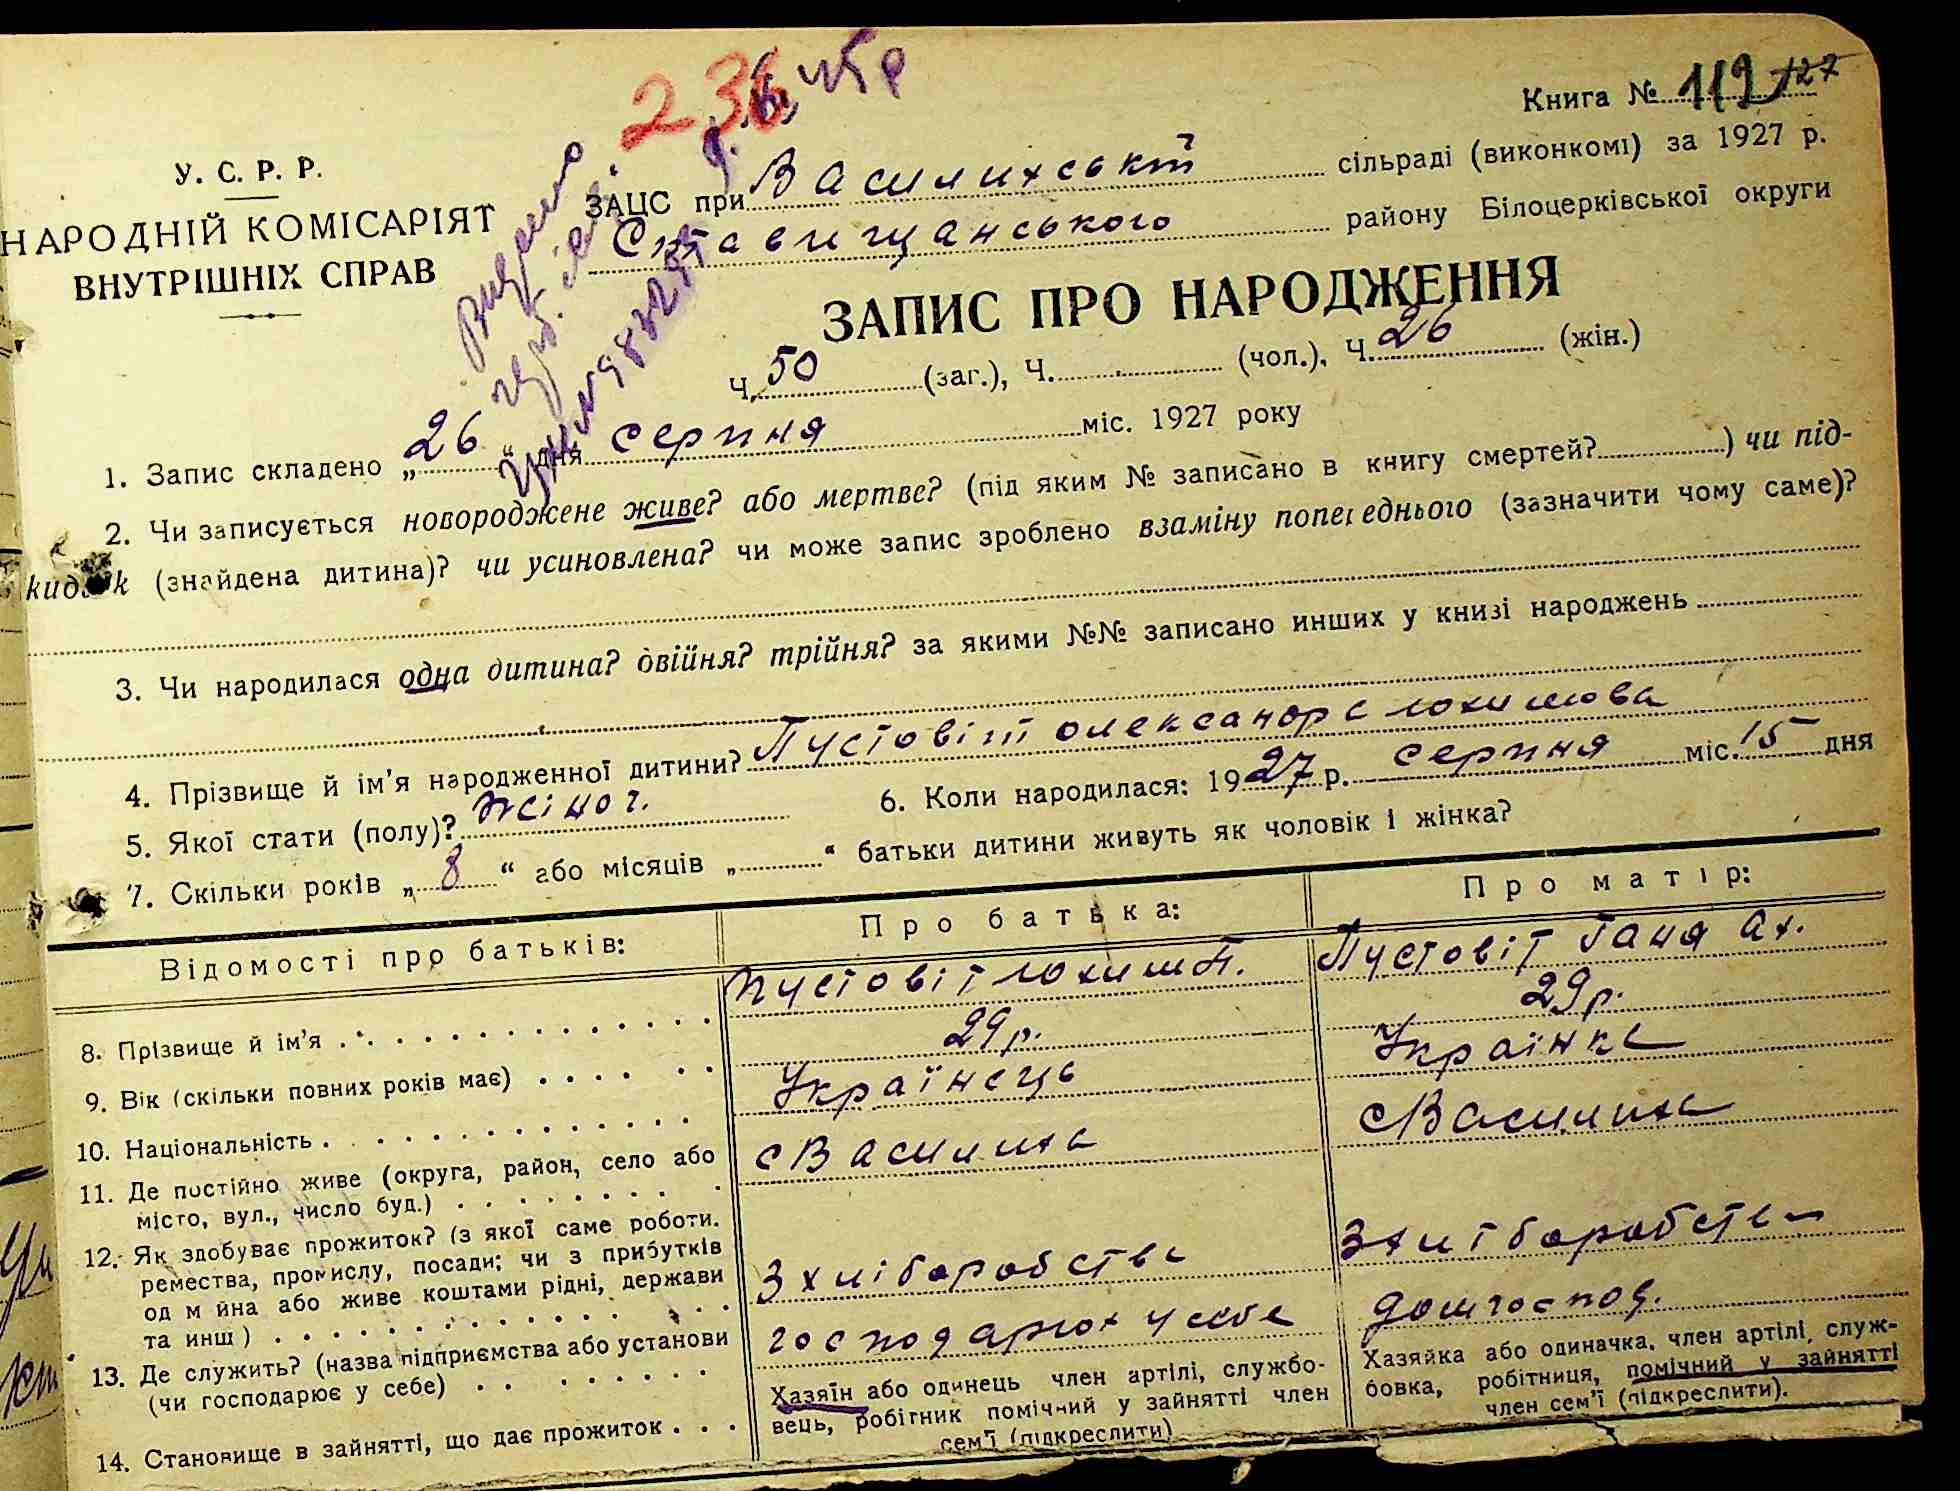 Книга № 119 127
236
У. С. Р. Р.
НАРОДНІЙ КОМІСАРІЯТ
ВНУТРІШНІХ СПРАВ
ЗАЦС при Василихській сільраді (виконкомі) за 1927 р.
Ставищанського району Білоцерківської округи
ЗАПИС ПРО НАРОДЖЕННЯ
Ч. 50 (заг.), Ч. (чол.), Ч. 26 (жін.)
1. Запис складено „ 26 “ дня серпня міс. 1927 року
2. Чи записується новороджене живе? або мертве? (під яким № записано в книгу смертей? ) чи під-
кидьок (знайдена дитина)? чи усиновлена? чи може запис зроблено взаміну попереднього (зазначити чому саме)?
3. Чи народилася одна дитина? двійня? трійня? за якими №№ записано инших у книзі народжень
4. Прізвище й ім’я народженної дитини? Пустовіт олександра юхимова
5. Якої стати (полу)? жіноч. 6. Коли народилася: 1927 р. серпня міс. 15 дня
7. Скільки років „ 8 “ або місяців „ “ батьки дитини живуть як чоловік і жінка?
Відомості про батьків: Про батька: Про матір:
8. Прізвище й ім’я Пустовіт юхим П. Пустовіт Ганя Ах.
9. Вік (скільки повних років має) 29 р. 29 р.
10. Національність Українець Українка
11. Де постійно живе (округа, район, село або
місто, вул., число буд.) с Василиха с Василиха
12. Як здобуває прожиток? (з якої саме роботи.
ремества, промислу, посади; чи з прибутків
од м йна або живе коштами рідні, держави
та инш ) З хліборобства З хліборобства
13. Де служить? (назва підприємства або установи
(чи господарює у себе) господарює у себе дом господ.
14. Становище в зайнятті, що дає прожиток
Хазяїн або одинець член артілі, службо-
вець, робітник помічний у зайнятті член
сем’ї (підкреслити)
Хазяйка або одиначка, член артілі, служ-
бовка, робітниця, помічний у зайнятті
член сем’ї (підкреслити).